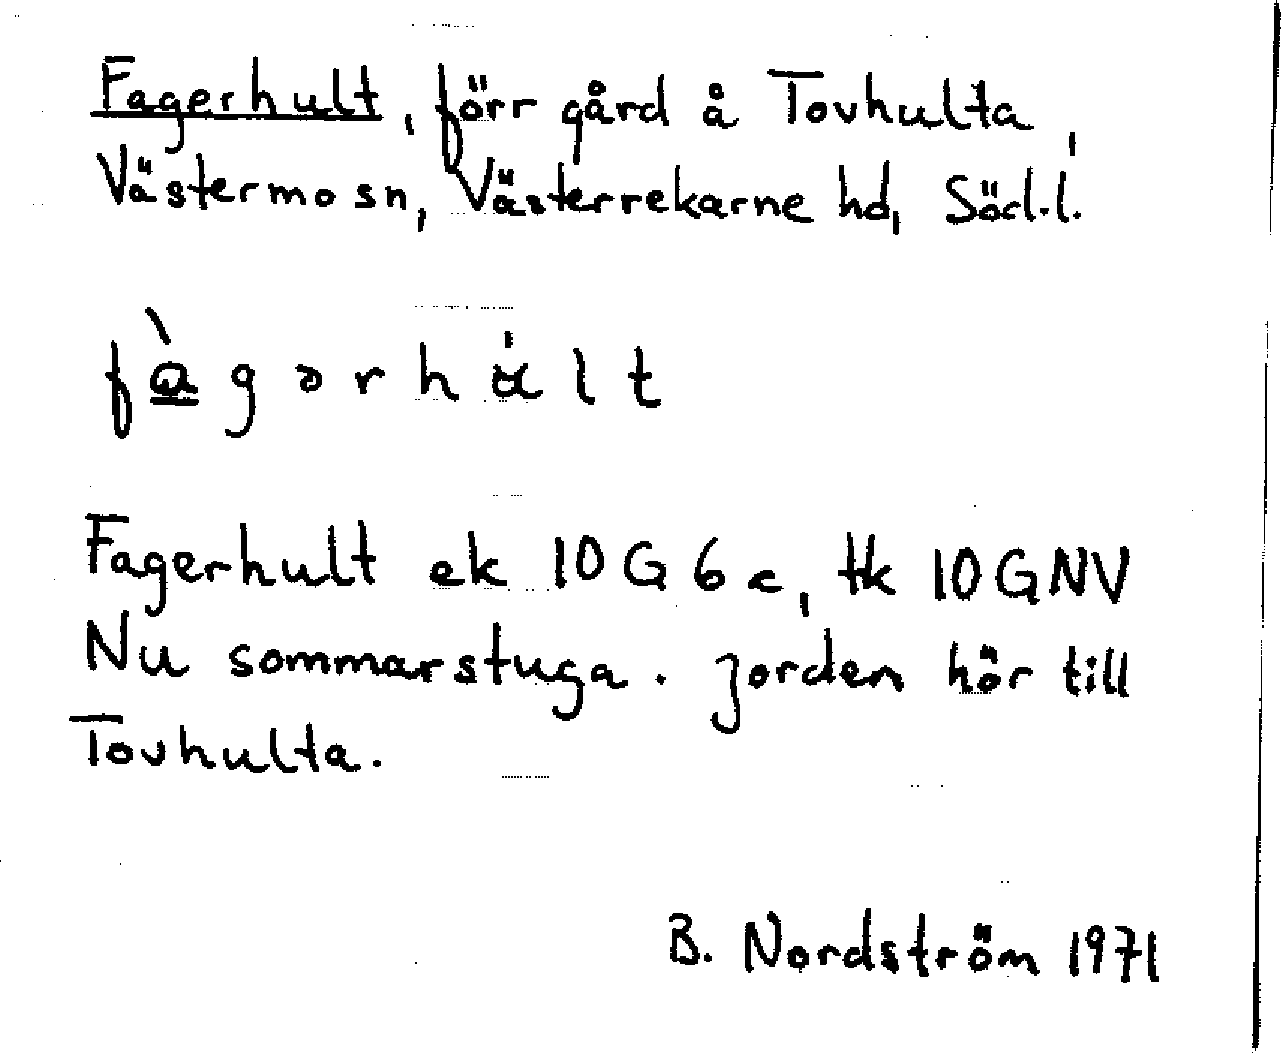 Fagerhult, förr gård å Tovhulta,
Västermo sn, Västerrekarne hd, Söd.l.
fàgərhált
Fagerhult ek 10 G 6 c, tk 10 G NV
Nu sommarstuga. Jorden hör till
Tovhulta.
B. Nordström 1971